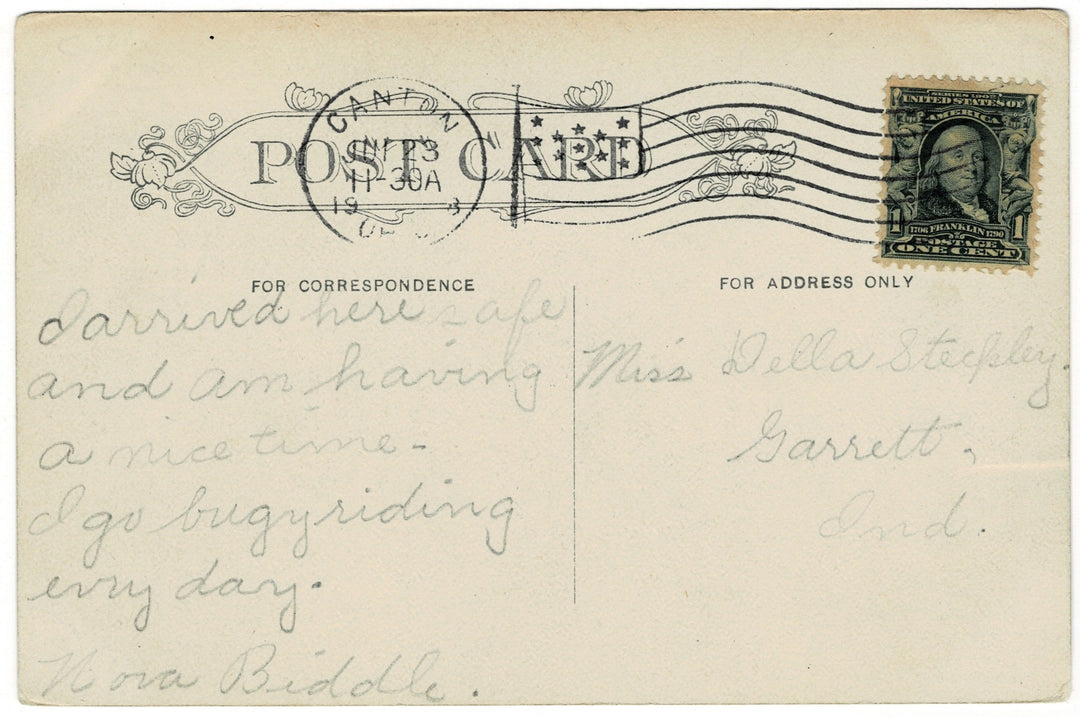 CANTON
23
11 30A
19 8
POST CARD
SERIES 1902
UNITED STATES OF
AMERICA
1 1
1706 FRANKLIN 1790
POSTAGE
ONE CENT
FOR CORRESPONDENCE
I arrived here safe
and am having
a nice time-
I go bugy riding
evry day.
Nora Biddle.
FOR ADDRESS ONLY
Miss Della Steckley.
Garrett,
Ind.